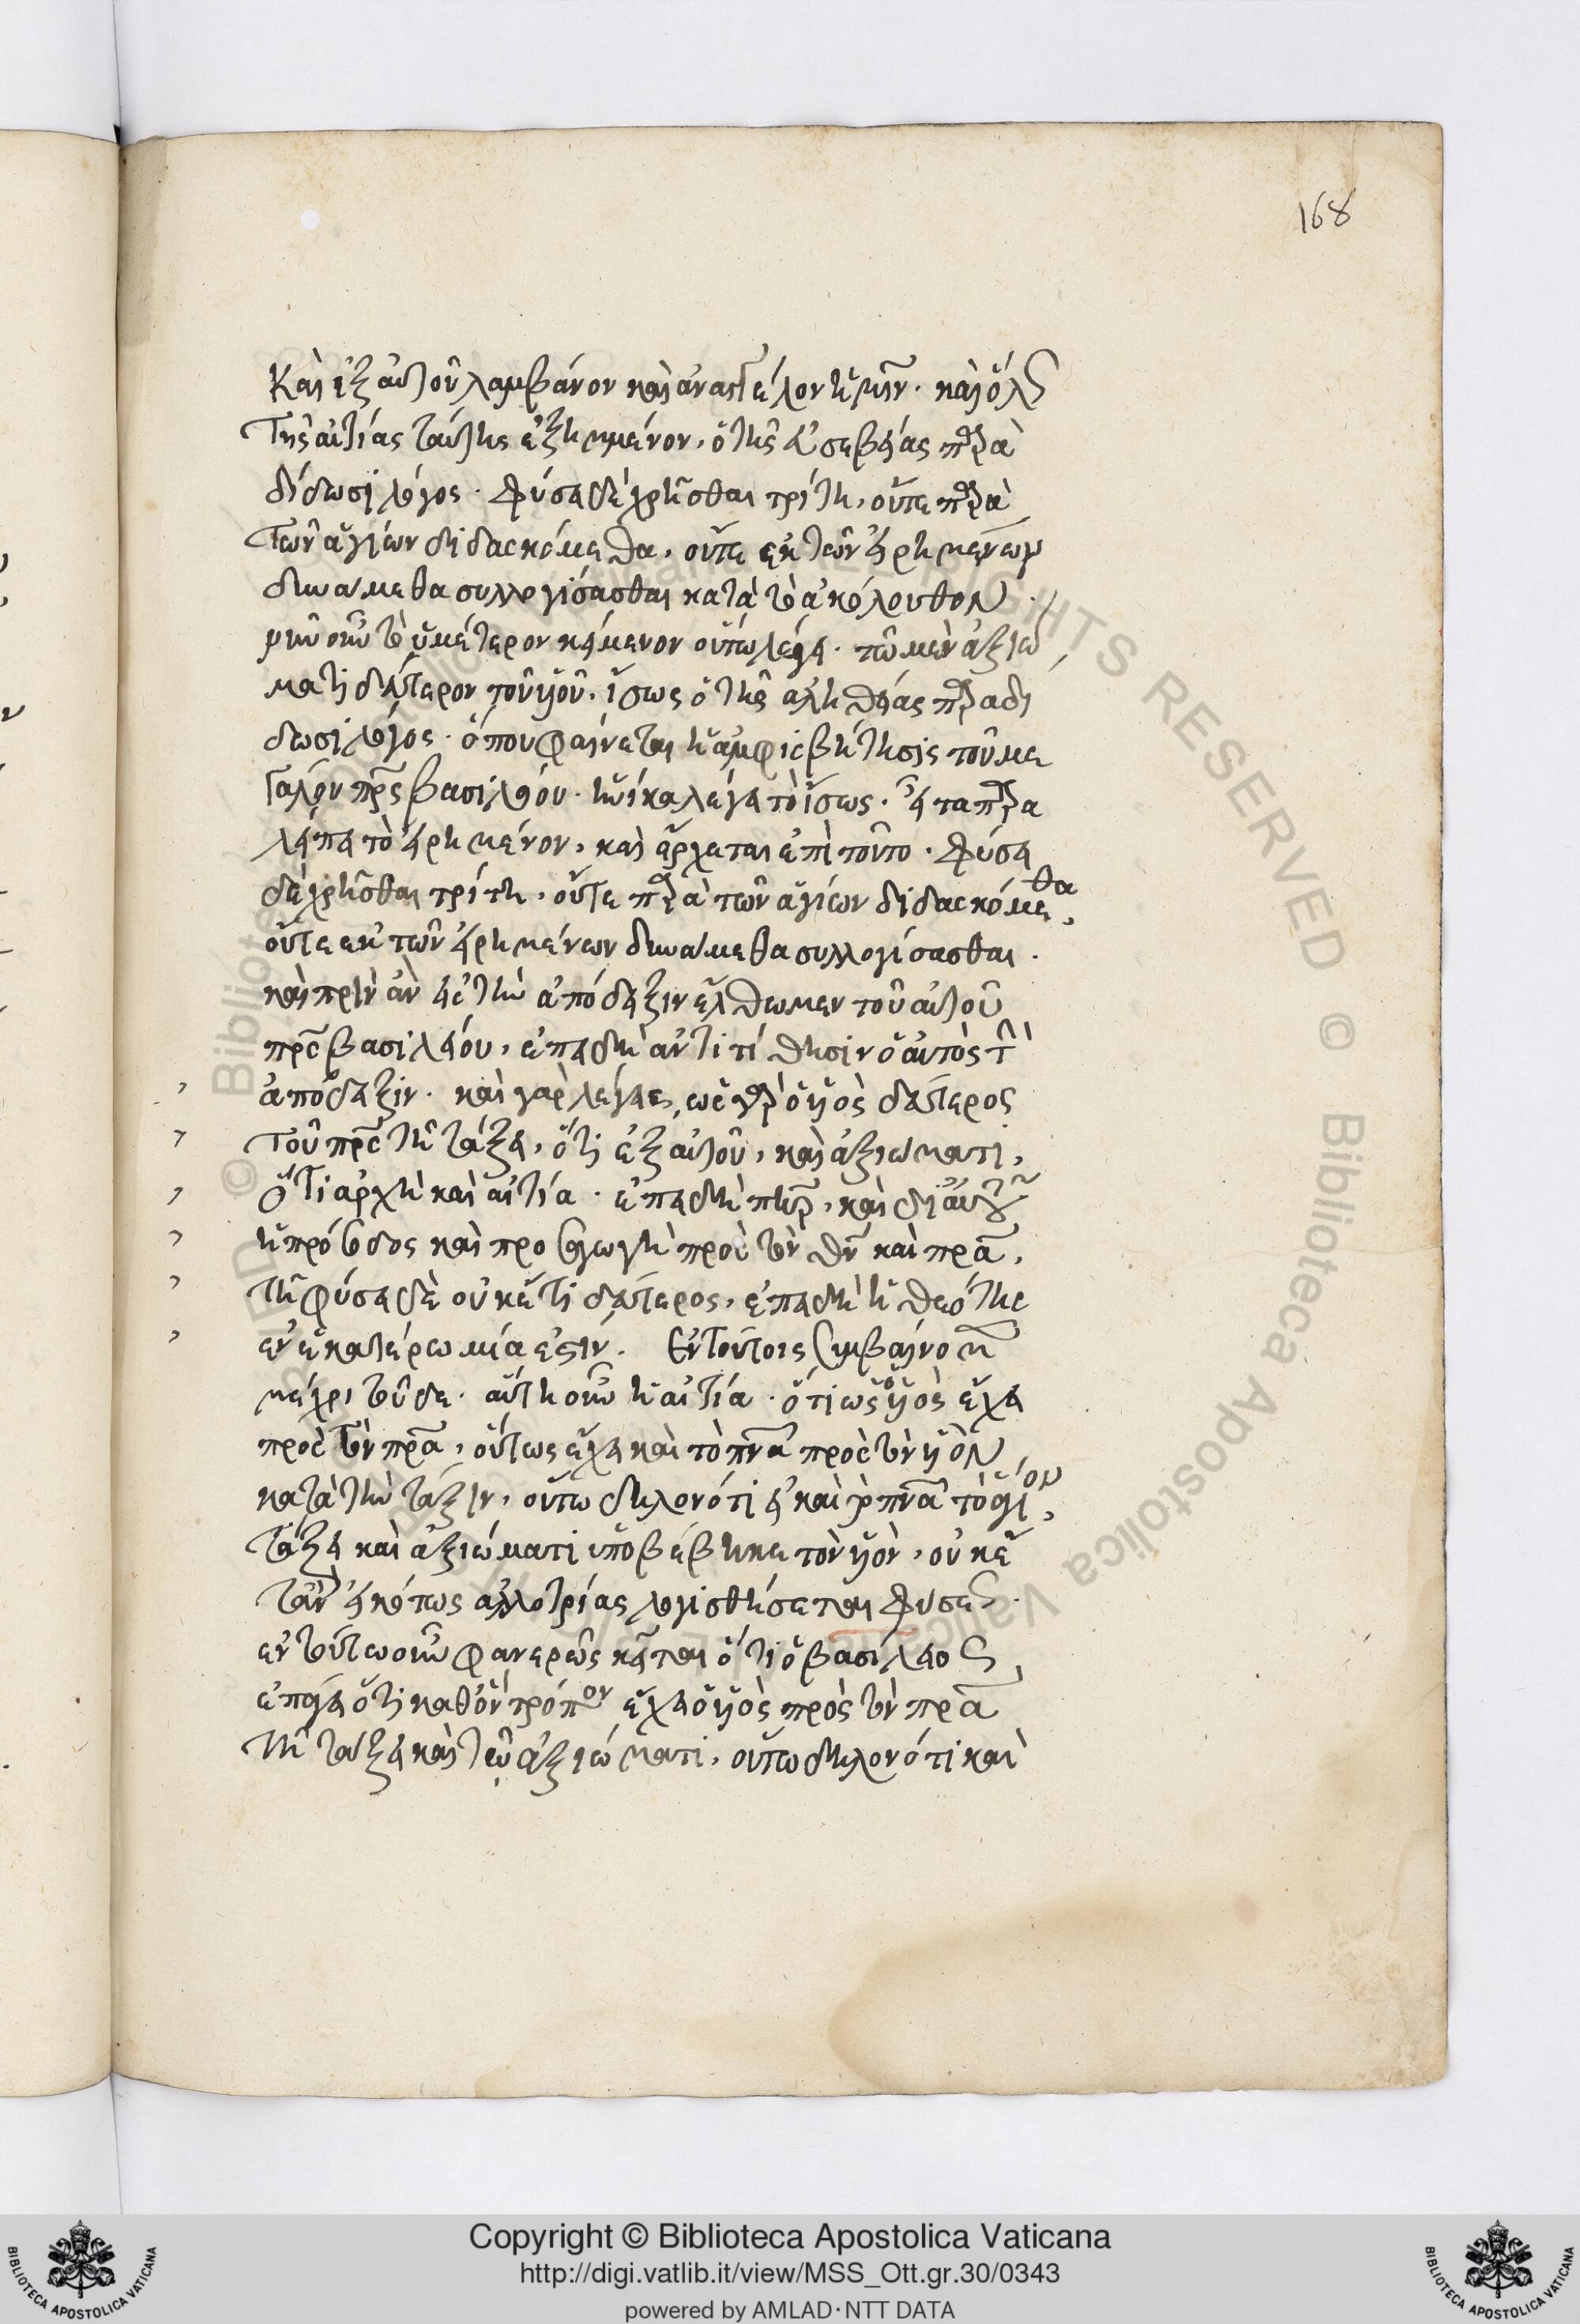 168
Καὶ ἐξ αὐτοῦ λαμβάνον καὶ ἀναγγέλον ἡμῖν· καὶ ὅλως
τῆς αἰτίας ταύτης ἐξημμένον, ὁ τῆς εὐσεβείας παρα
δίδωσι λόγος· φύσει δὲ χρῆσθαι τρίτη, οὔτε παρὰ
τῶν ἁγίων διδασκόμεθα, οὔτε ἐκ τῶν εἰρημένων
δυνάμεθα συλλογίσασθαι κατὰ τὸ ἀκόλουθον·
νῦν οὖν τὸ ὑμέτερον κείμενον οὕτω λέγει· τῶ μὲν ἀξιώ
ματι δεύτερον τοῦ υἱοῦ, ἴσως ὁ τῆς ἀληθείας παραδί
δωσι λόγος· ὅπου φαίνεται ἡ ἀμφισβήτησις τοῦ με
γάλου πρς βασιλείου· ἡνίκα λέγει τὸ ἴσως· εἶτα παρα
λείπει τὸ εἰρημένον, καὶ ἔρχεται ἐπὶ τοῦτο· φύσει
δὲ χρῆσθαι τρίτη, οὔτε παρὰ τῶν ἁγίων διδασκόμεθα,
οὔτε ἐκ τῶν εἰρημένων δυνάμεθα συλλογίσασθαι·
καὶ πρὶν ἂν εἰς τὴν ἀπόδειξιν ἔλθωμεν τοῦ αὐτοῦ
πρς βασιλείου, ἐπειδὴ ἀντιτίθησιν ὁ αὐτὸς τὴν
ἀπόδειξιν· καὶ γὰρ λέγει, ὡς γὰρ ὁ υἱὸς δεύτερος
τοῦ πρς τῇ τάξει, ὅτι ἐξ αὐτοῦ, καὶ ἀξιώματι,
ὅτι ἀρχὴ καὶ αἰτία· ἐπειδὴ πηρ, καὶ δι' αὐτοῦ
ἡ πρόοδος καὶ προσαγωγὴ πρὸς τὸν θν καὶ πρα,
τῇ φύσει δὲ οὐκέτι δεύτερος, ἐπειδὴ ἡ θεότης
ἐν ἑκατέρω μία ἐστίν. Ἐν τούτοις συμβαίνομεν
μέχρι τοῦδε· αὕτη οὖν ἡ αἰτία· ὅτι ὡς ὁ υἱὸς ἔχει
πρὸς τὸν πρα, οὕτως ἔχει καὶ τὸ πνα πρὸς τὸν υἱὸν
κατὰ τὴν τάξιν, οὕτω δηλονότι εἰ καὶ τὸ πνα τὸ ἅγιον,
τάξει καὶ ἀξιώματι ὑποβέβηκε τὸν υἱὸν, οὐκέ
τ' ἂν εἰκότως ἀλλοτρίας λογισθήσεται φύσεως·
ἐν τούτω οὖν φανερῶς κεῖται ὅτι ὁ βασίλειος,
ἐπάγει ὅτι καθ' ὃν τρόπον ἔχει ὁ υἱὸς πρὸς τὸν πρα
τῇ τάξει καὶ τῶ ἀξιώματι, οὕτω δηλονότι καὶ
Copyright © Biblioteca Apostolica Vaticana
http://digi.vatlib.it/view/MSS_Ott.gr.30/0343
powered by AMLAD·NTT DATA
BIBLIOTECA APOSTOLICA VATICANA
BIBLIOTECA APOSTOLICA VATICANA